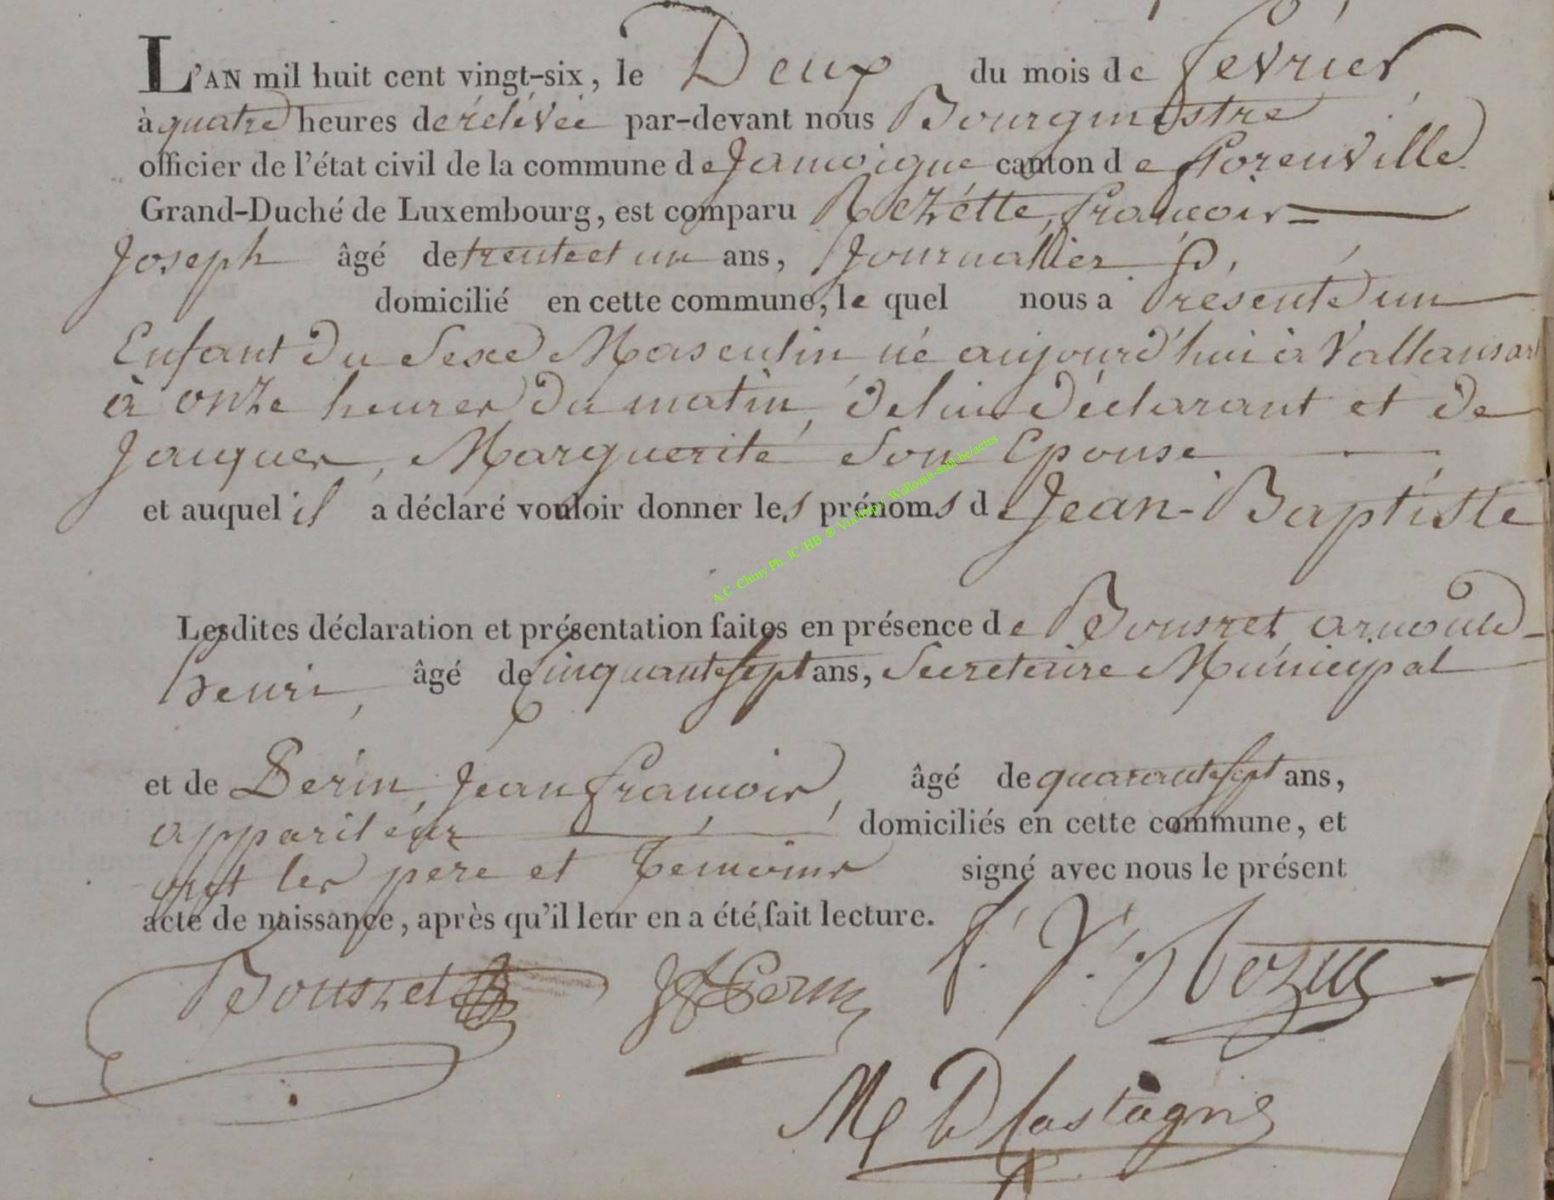 L'AN mil huit cent vingt-six, le Deux du mois de fevrier
à quatre heures de rélévée par-devant nous Bourgmestre
officier de l'état civil de la commune de Jamoigne canton de florenville
Grand-Duché de Luxembourg, est comparu Rozétte, françois=
Joseph âgé de trente et un ans, Journallier
domicilié en cette commune, le quel nous a Présenté un
Enfant du Sexe Masculin, né aujourd'hui à Vallansart
à onze heures du matin, de lui déclarant et de
Jacques, Marguerite Son Epouse
et auquel il a déclaré vouloir donner les prénoms de Jean-Baptiste
Lesdites déclaration et présentation faites en présence de Bousret arnould-
henri, âgé de Cinquante Sept ans, Secretaire Municipal
et de Perin, Jean françois, âgé de quarante Sept ans,
appariteur domiciliés en cette commune, et
ont les pere et temoins signé avec nous le présent
acte de naissance, après qu'il leur en a été fait lecture.
Bousret JfPerin f. J. Rozet
A.C. Chiny Ph. JC HB ® Visaloup / Wallonia-asbl.be/actes